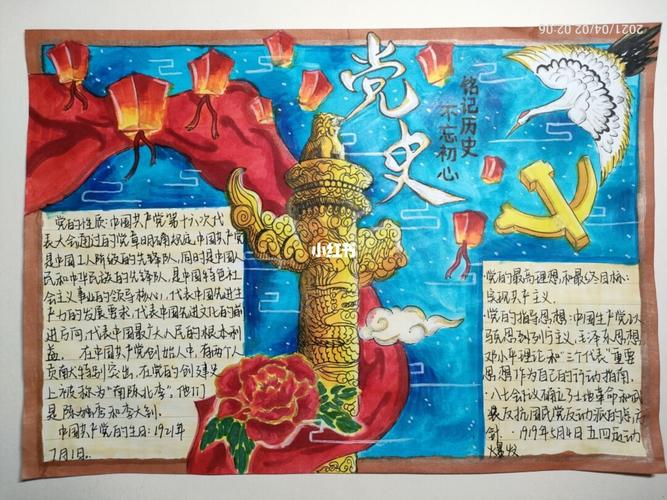 2021/04/02 02:06
党史
铭记历史
不忘初心
小红书
党的性质:中国共产党第十六次代
表大会通过的党章明确规定,中国共产党
是中国工人阶级的先锋队,同时是中国人
民和中华民族的先锋队,是中国特色社
会主义事业的领导核心,代表中国先进生
产力的发展要求,代表中国先进文化的前
进方向,代表中国最广大人民的根本利
益。 在中国共产党创始人中,有两个人
贡献特别突出,在党的创建史
上被称为“南陈北李”,他们
是陈独秀和李大钊。
中国共产党的生日:1921年
7月1日。
党的最高理想和最终目标:
实现共产主义.
·党的指导思想:中国共产党以马
列主义,毛泽东思想,
邓小平理论和“三个代表”重要
思想作为自己的行动指南.
·八七会议确立了土地革命和武
装反抗国民党反动派的
·1919年5月4日五四运动
爆发